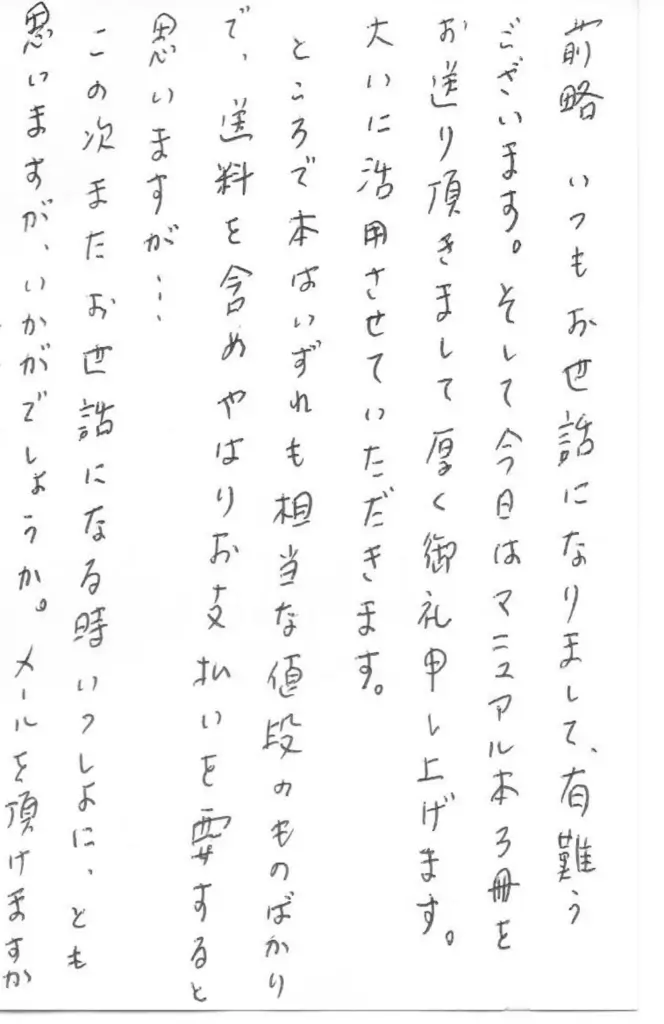 前略 いつもお世話になりまして、有難う
ございます。そして今日はマニュアル本3冊を
お送り頂きまして厚く御礼申し上げます。
大いに活用させていただきます。
ところで本はいずれも相当な値段のものばかり
で、送料を含めやはりお支払いを要すると
思いますが…
この次またお世話になる時いっしょに、とも
思いますが、いかがでしょうか。メールを頂けますか